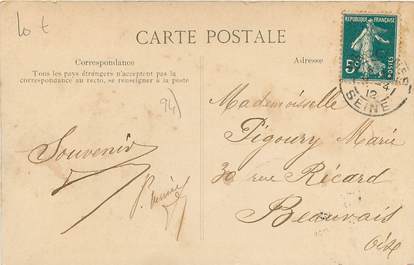 lot
CARTE POSTALE
Correspondance
Tous les pays étrangers n'acceptent pas la
correspondance au recto, se renseigner à la poste
Adresse
RÉPUBLIQUE FRANÇAISE
5
POSTES
-4
12
SEINE
94
Souvenir
Mademoiselle
Pigoury Marie
30 rue Récard
Beauvais
Oise